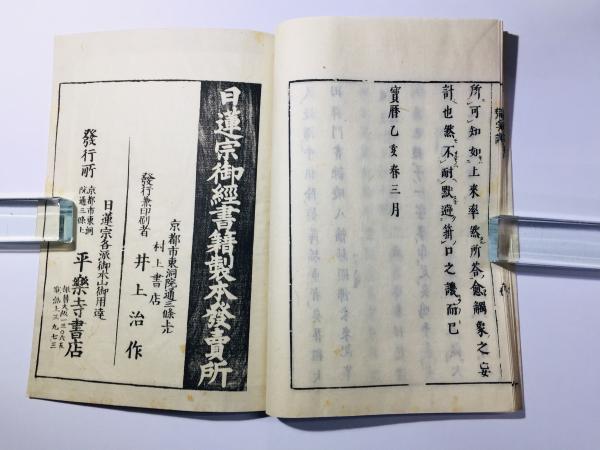 所可知如上來率然所答愈觸象之妄
計也然不耐默遊箝口之譏而已
寶曆乙亥春三月
日蓮宗御經書籍製本發賣所
京都市東洞院通三條上
村上書店
發行兼印刷者
井上治作
日蓮宗各派御本山御用達
發行所
京都市東洞
院通三條上
平樂寺書店